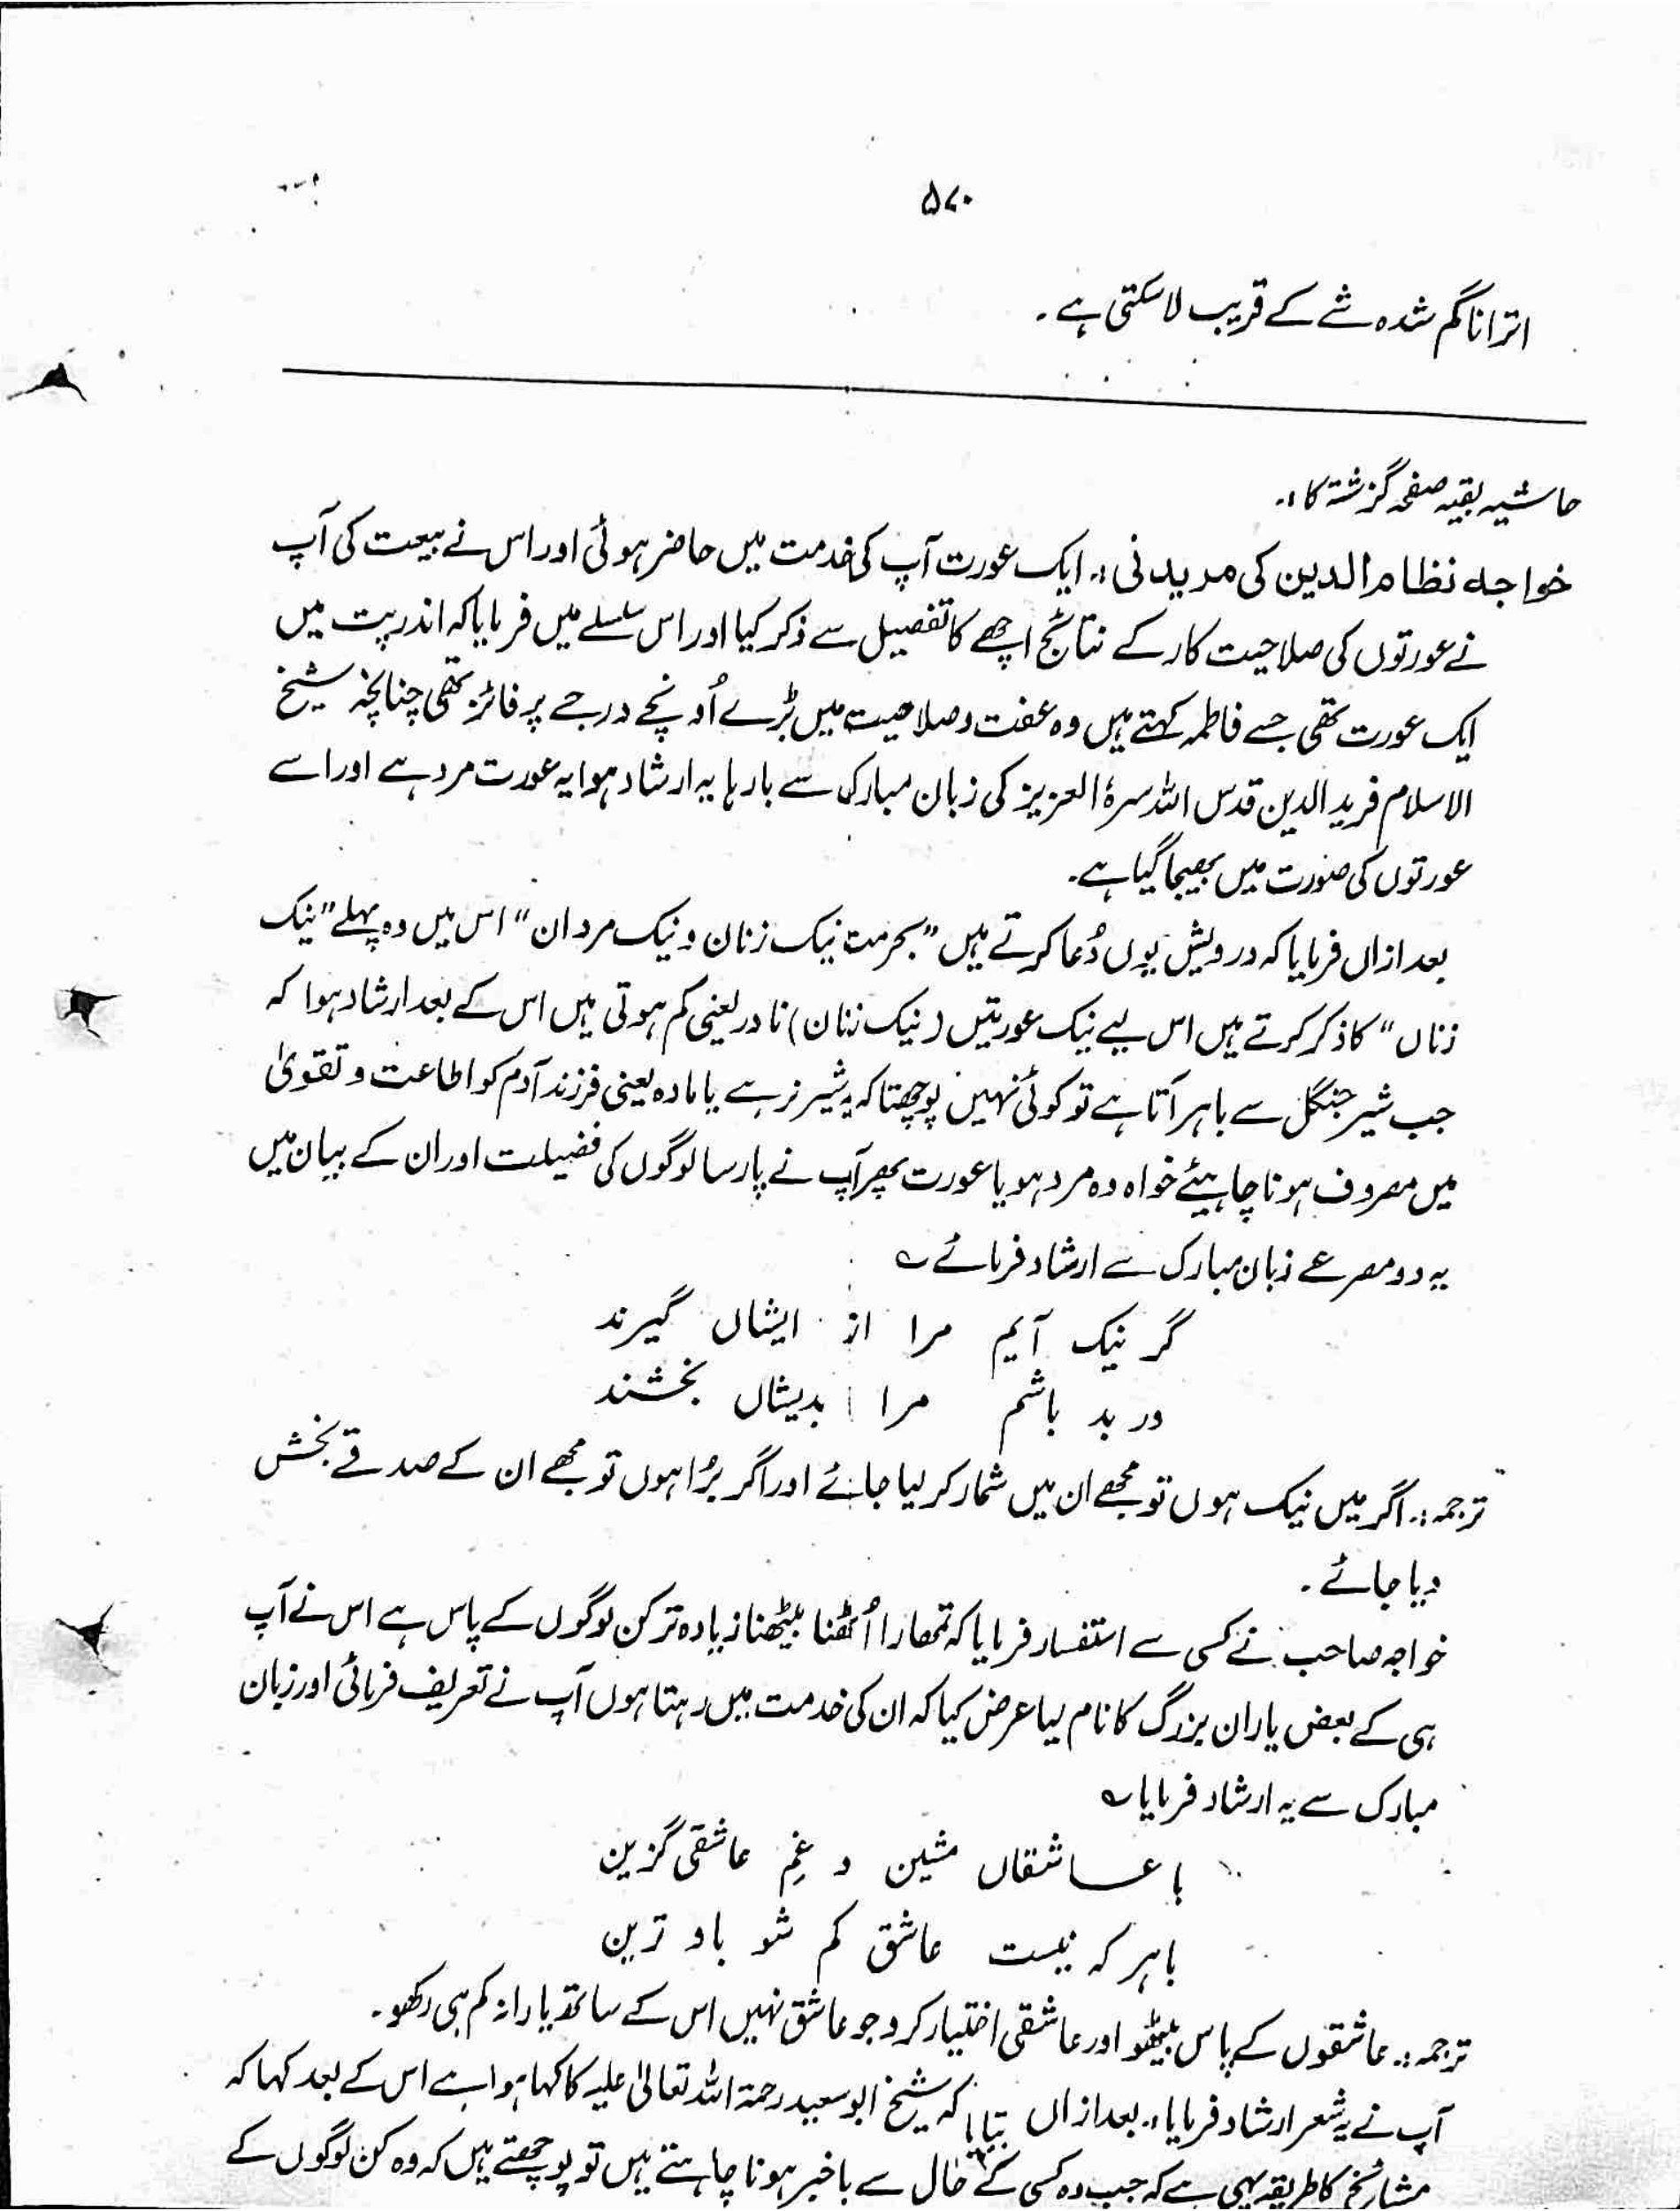 ۵۷۰
اترانا گم شدہ شے کے قریب لا سکتی ہے ۔
حاشیہ بقیہ صفحہ گزشتہ کا :۔
خواجہ نظام الدین کی مریدنی :۔ ایک عورت آپ کی خدمت میں حاضر ہوئی اور اس نے بیعت کی آپ
نے عورتوں کی صلاحیت کار کے نتائج اچھے کا تفصیل سے ذکر کیا اور اس سلسلے میں فرمایا کہ اندرپت میں
ایک عورت تھی جسے فاطمہ کہتے ہیں وہ عفت و صلاحیت میں بڑے اُونچے درجے پر فائز تھی چنانچہ شیخ
الاسلام فرید الدین قدس اللہ سرہٗ العزیز کی زبان مبارک سے بارہا یہ ارشاد ہوا یہ عورت مرد ہے اور اسے
عورتوں کی صورت میں بھیجا گیا ہے۔
بعد ازاں فرمایا کہ درویش یوں دُعا کرتے ہیں ”بحرمت نیک زنان و نیک مردان“ اس میں وہ پہلے ”نیک
زناں“ کا ذکر کرتے ہیں اس لیے نیک عورتیں (نیک زنان) نادر یعنی کم ہوتی ہیں اس کے بعد ارشاد ہوا کہ
جب شیر جنگل سے باہر آتا ہے تو کوئی نہیں پوچھتا کہ یہ شیر نر ہے یا مادہ یعنی فرزند آدم کو اطاعت و تقویٰ
میں معروف ہونا چاہیئے خواہ وہ مرد ہو یا عورت پھر آپ نے پارسا لوگوں کی فضیلت اور ان کے بیان میں
یہ دو مصرعے زبان مبارک سے ارشاد فرمائے ؎
گر نیک آیم مرا از ایشاں گیرند
ور بد باشم مرا بدیشاں بخشند
ترجمہ :۔ اگر میں نیک ہوں تو مجھے ان میں شمار کر لیا جائے اور اگر بُرا ہوں تو مجھے ان کے صدقے بخش
دیا جائے ۔
خواجہ صاحب نے کسی سے استفسار فرمایا کہ تمھارا اُٹھنا بیٹھنا زیادہ تر کن لوگوں کے پاس ہے اس نے آپ
ہی کے بعض یاران بزرگ کا نام لیا عرض کیا کہ ان کی خدمت میں رہتا ہوں آپ نے تعریف فرمائی اور زبان
مبارک سے یہ ارشاد فرمایا ؎
با عاشقاں مشین و غمِ عاشقی گزین
باہر کہ نیست عاشق کم شو باو ترین
ترجمہ :۔ عاشقوں کے پاس بیٹھو اور عاشقی اختیار کرو جو عاشق نہیں اس کے ساتھ یارانہ کم ہی رکھو۔
آپ نے یہ شعر ارشاد فرمایا۔ بعد ازاں بتایا کہ شیخ ابوسعید رحمۃ اللہ تعالیٰ علیہ کا کہا ہوا ہے اس کے بعد کہا کہ
مشائخ کا طریقہ یہی ہے کہ جب وہ کسی کے حال سے باخبر ہونا چاہتے ہیں تو پوچھتے ہیں کہ وہ کن لوگوں کے